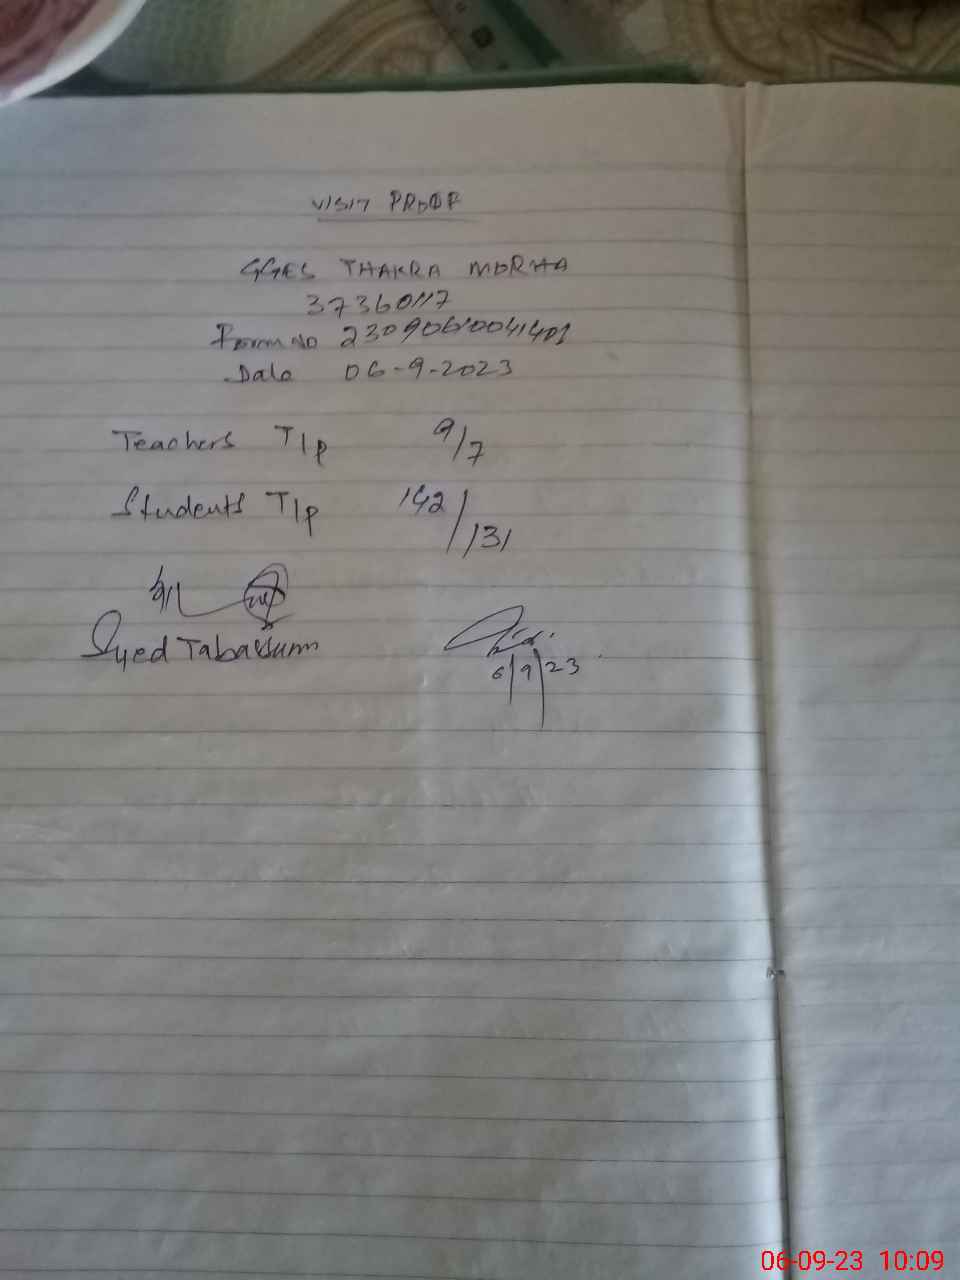 VISIT PROOF
GGES THAKRA MORHA
37360117
Form No 23090610041401
Date 06-9-2023
Teachers T/p 9/7
Students T/p 142/131
Syed Tabassum
6/9/23
06-09-23 10:09